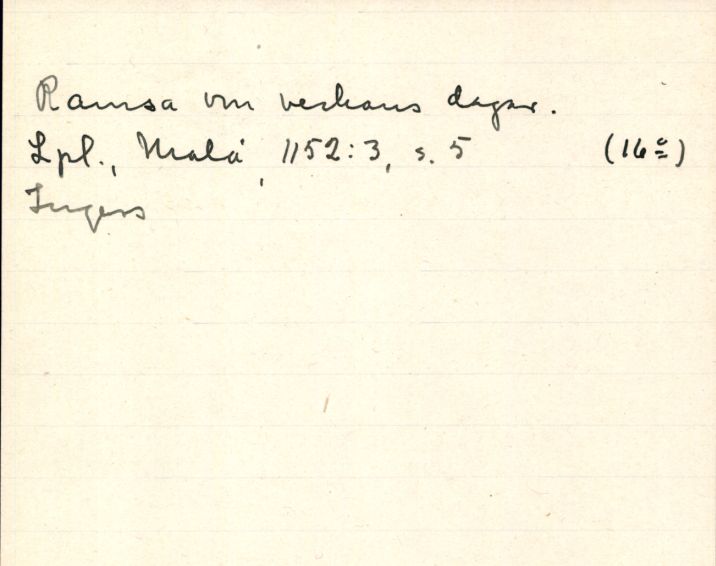 Ramsa om veckans dagar.
Lpl., Malå, 1152:3, s. 5 (16º)
Ingers